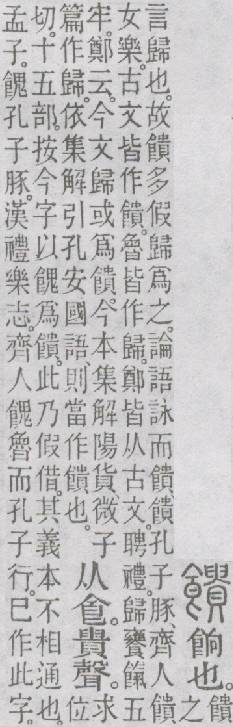 饋餉也。饋之
言歸也。故饋多假歸爲之。論語詠而饋、饋孔子豚、齊人饋
女樂。古文皆作饋。魯皆作歸。鄭皆从古文。聘禮。歸饔餼五
牢。鄭云。今文歸或爲饋。今本集解陽貨、微子
篇作歸。依集解引孔安國語、則當作饋也。
从食。貴聲。求位
切。十五部。按今字以餽爲饋。此乃假借。其義本不相通也。
孟子。餽孔子豚。漢禮樂志。齊人餽魯而孔子行。巳作此字。